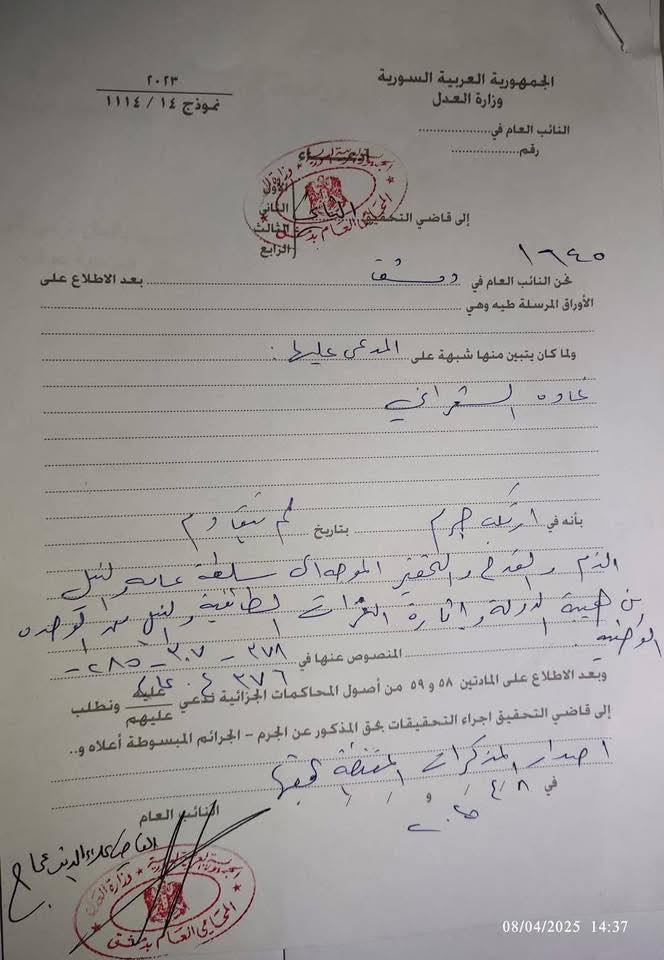 الجمهورية العربية السورية
وزارة العدل
٢٠٢٣
نموذج ١٤ / ١١١٤
النائب العام في..................
رقم..................
الأول
الثاني
إلى قاضي التحقيق
الثالث
الرابع
١٦٤٥
نحن النائب العام في دمشق بعد الاطلاع على
الأوراق المرسلة طيه وهي
ولما كان يتبين منها شبهة على المدعى عليها :
غادة الشعراني
بأنه في ارتكب جرم بتاريخ لم يتقادم
الذم والقدح والتحقير الموجه الى سلطة عامة والنيل
من هيبة الدولة وإثارة النعرات الطائفية والنيل من الوحدة
الوطنية
المنصوص عنها في ٣٧٨ - ٣٠٧ - ٢٨٥ -
٣٧٦ ع. عام
وبعد الاطلاع على المادتين ٥٨ و ٥٩ من أصول المحاكمات الجزائية ندعي عليه ونطلب
عليهم
إلى قاضي التحقيق اجراء التحقيقات بحق المذكور عن الجرم – الجرائم المبسوطة أعلاه و..
اصدار المذكرات المقتضاة بحقها
في ٨ / ٤ / و / /
٢٠٢٥
النائب العام
القاضي علاء الدين
الجمهورية العربية السورية
وزارة العدل
المحامي العام بدمشق
08/04/2025 14:37